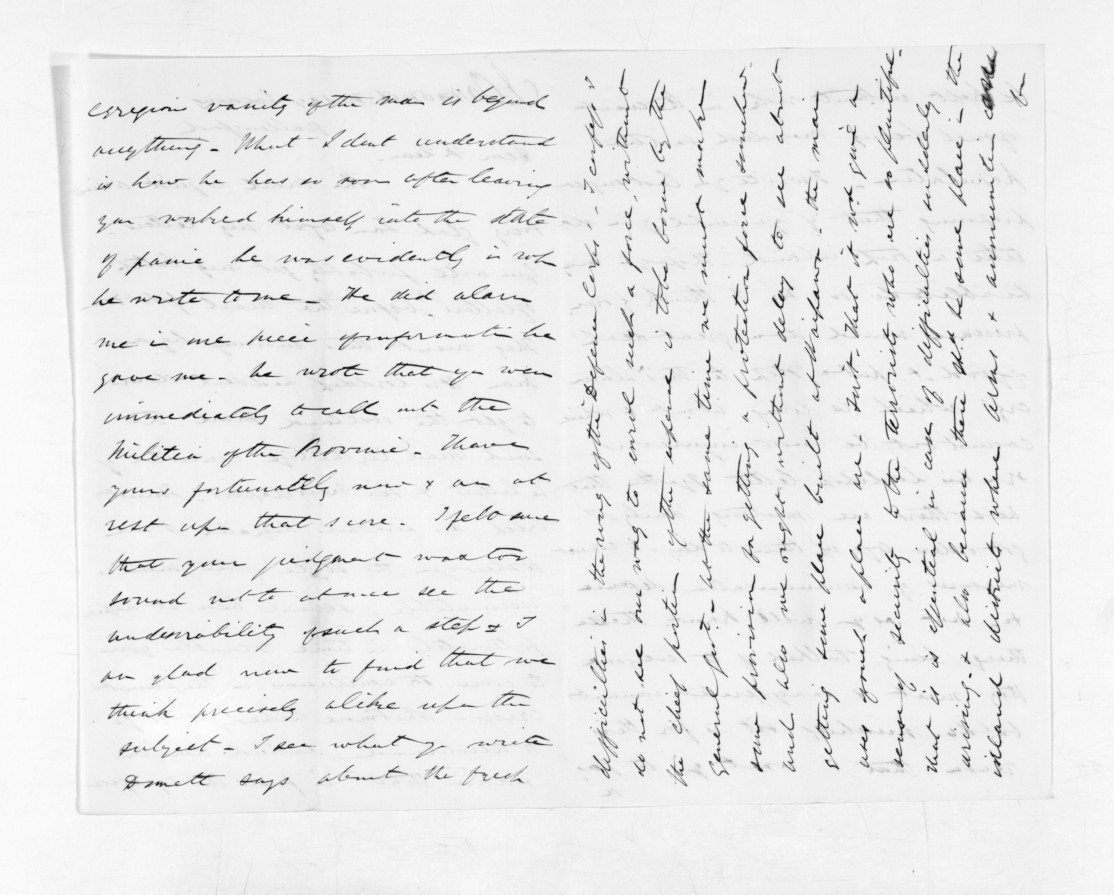 egregious vanity of the man is beyond
anything - What I dont understand
is how he has so soon after leaving
you worked himself into the state
of panic he was evidently in wh
he wrote to me - He did alarm
me in one piece of information he
gave me - he wrote that you were
immediately to call out the
Militia of the Province - I have
yours fortunately now & am at
rest upon that score - I felt sure
that your judgment was too
sound not to at once see the
undesirability of such a step & I
am glad now to find that we
think precisely alike upon the
subject - I see what you write
Domett says about the fresh
difficulties in the way of the Defence Corps - I confess I
do not see our way to enrol such a force, without
the chief portion of the expense is to be borne by the
General Govt - at the same time we must make
some provision for getting a protection force somehow -
and also we ought without delay to see about
getting some place built at Waipawa - the main
use of such a place wd. be - first - That it wd give a
sense of security to the terrorists who are so plentiful -
that is essential in case of difficulties suddenly
arising - & also because there shd be some place in the
inland districts where arms & ammunition